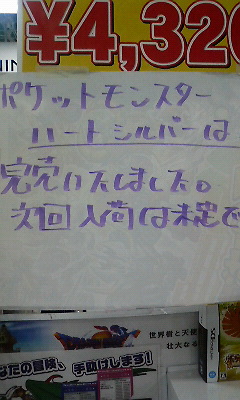 ¥4,320
ポケットモンスター
ハートシルバーは
完売いたしました。
次回入荷は未定で
世界樹と天使
壮大なる
なたの冒険、手助けします!